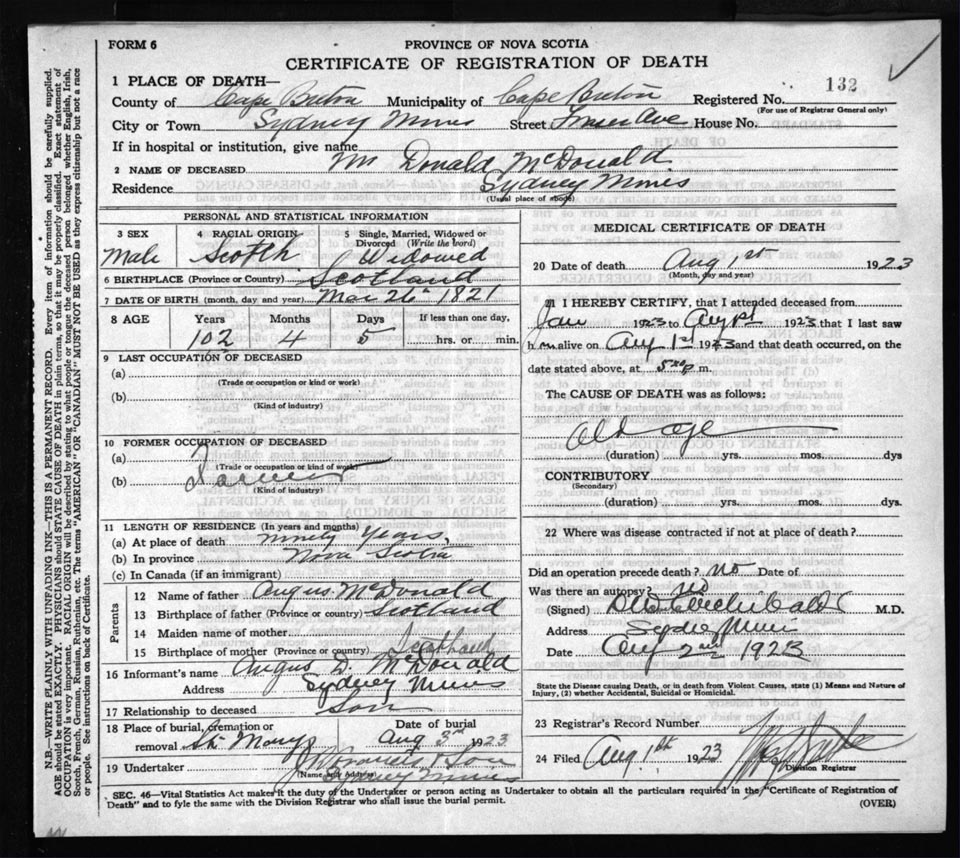 FORM 6
PROVINCE OF NOVA SCOTIA
CERTIFICATE OF REGISTRATION OF DEATH
132
1 PLACE OF DEATH—
County of Cape Breton Municipality of Cape Breton Registered No.
(For use of Registrar General only)
City or Town Sydney Mines Street Fraser Ave House No.
If in hospital or institution, give name
2 NAME OF DECEASED Mr Donald McDonald
Residence Sydney Mines
(Usual place of abode)
PERSONAL AND STATISTICAL INFORMATION
3 SEX
Male
4 RACIAL ORIGIN
Scotch
5 Single, Married, Widowed or Divorced (Write the word)
Widowed
6 BIRTHPLACE (Province or Country) Scotland
7 DATE OF BIRTH (month, day, and year) Mar 26th 1821
8 AGE Years Months Days If less than one day,
102 4 5 hrs. or min.
9 LAST OCCUPATION OF DECEASED
(a)
(Trade or occupation or kind or work)
(b)
(Kind of industry)
10 FORMER OCCUPATION OF DECEASED
(a)
(Trade or occupation or kind of work)
(b) Farmer
(Kind of industry)
11 LENGTH OF RESIDENCE (In years and months)
(a) At place of death Ninety Years,
(b) In province Nova Scotia
(c) In Canada (if an immigrant)
Parents
12 Name of father Angus McDonald
13 Birthplace of father (Province or country) Scotland
14 Maiden name of mother
15 Birthplace of mother (Province or country) Scotland
16 Informant's name Angus D. McDonald
Address Sydney Mines
17 Relationship to deceased Son
18 Place of burial, cremation or removal St. Marys
Date of burial
Aug 3rd 1923
19 Undertaker Francis & Son
(Name and Address)
Sydney Mines
MEDICAL CERTIFICATE OF DEATH
20 Date of death Aug 1st 1923
(Month, day and year)
21 I HEREBY CERTIFY, that I attended deceased from
Jan 1923 to Aug 1st 1923 that I last saw
him alive on Aug 1st 1923 and that death occurred, on the
date stated above, at 5 p m.
The CAUSE OF DEATH was as follows:
Old age
(duration) yrs. mos. dys
CONTRIBUTORY
(Secondary)
(duration) yrs. mos. dys.
22 Where was disease contracted if not at place of death?
Did an operation precede death? No Date of
Was there an autopsy? No
(Signed) Archibald M.D.
Address Sydney Mines
Date Aug 2nd 1923
State the Disease causing Death, or in death from Violent Causes, state (1) Means and Nature of Injury, (2) whether Accidental, Suicidal or Homicidal.
23 Registrar's Record Number
24 Filed Aug 1st 1923
Division Registrar
SEC. 46—Vital Statistics Act makes it the duty of the Undertaker or person acting as Undertaker to obtain all the particulars required in the "Certificate of Registration of
Death" and to fyle the same with the Division Registrar who shall issue the burial permit.
(OVER)
N.B.—WRITE PLAINLY WITH UNFADING INK—THIS IS A PERMANENT RECORD. Every item of information should be carefully supplied.
AGE should be stated EXACTLY. PHYSICIANS should STATE CAUSE OF DEATH in plain terms, so that it may be properly classified. Exact statement of
OCCUPATION is very important. RACIAL ORIGIN will be described by stating to what people or tongue the deceased person belonged whether English, Irish,
Scotch, French, German, Russian, Ruthenian, etc. The terms "AMERICAN" OR "CANADIAN" MUST NOT BE USED as they express citizenship but not a race
or people. See instructions on back of Certificate.